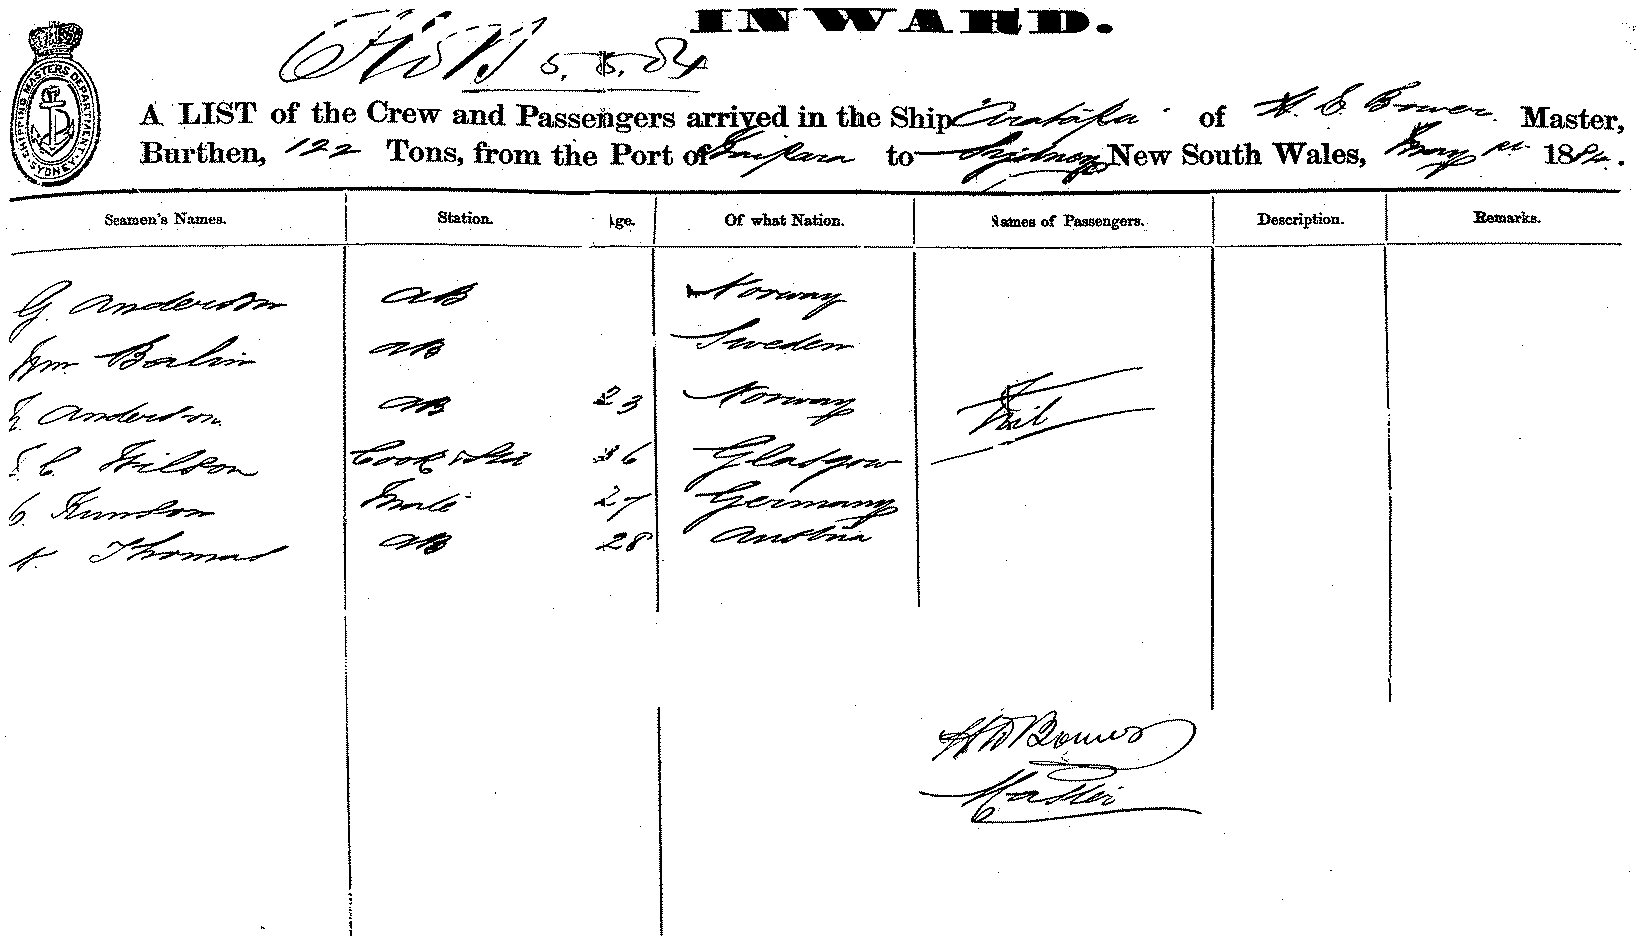 INWARD.
5.5.84
SHIPPING MASTERS DEPARTMENT SYDNEY
A LIST of the Crew and Passengers arrived in the Ship of Bower Master,
Burthen, 122 Tons, from the Port of Kaipara to Sydney New South Wales, May 1884.
Seamen's Names. Station. Age. Of what Nation. Names of Passengers. Description. Remarks.
G. Anderson AB Norway
Wm Bolin AB Sweden
Anderson AB 23 Norway Nil
C Wilson Cook & Std 36 Glasgow
C. Mate 27 Germany
Thomas AB 28 Austria
Bower
Master